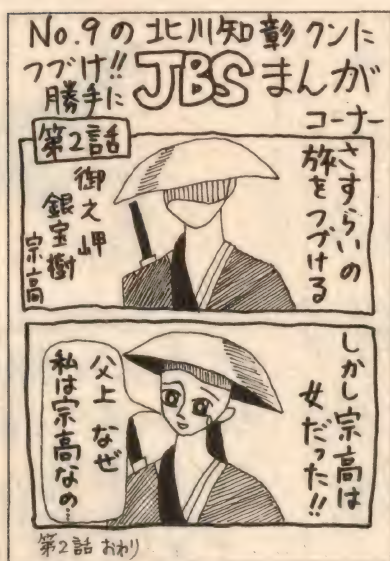 No.9の北川知彰クンに
つづけ!!
勝手に
JBSまんが
コーナー
第2話
さすらいの
旅をつづける
御え岬
銀宝樹
宗高
しかし宗高は
女だった!!
父上 なぜ
私は宗高なの…
第2話 おわり